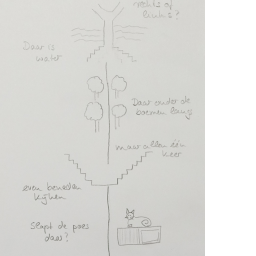 rechts of
links?
Daar is
water
Daar onder de
bomen lang
maar allen één
keer
even
kijken
Slaapt de poes
daar?